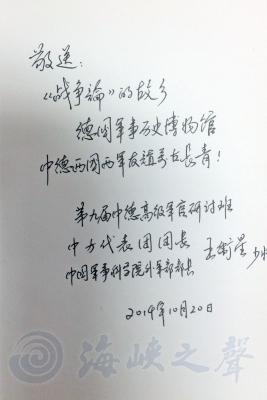 敬送：
《战争論》的故乡
德国军事历史博物馆
中德两国两军友谊万古長青！
第九届中德高级军官研讨班
中方代表团团长
王衛星 少将
中国军事科学院外军部部长
2014年10月20日
海峡之聲